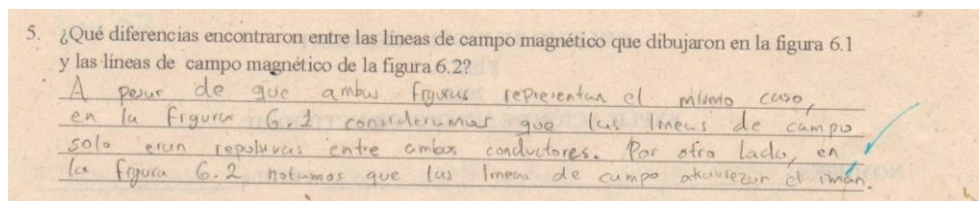 5. ¿Qué diferencias encontraron entre las líneas de campo magnético que dibujaron en la figura 6.1
y las líneas de campo magnético de la figura 6.2?
A pesar de que ambas figuras representan el mismo caso,
en la figura 6.1 consideramos que las líneas de campo
solo eran repulsivas entre ambos conductores. Por otro lado, en
la figura 6.2 notamos que las líneas de campo el imán.